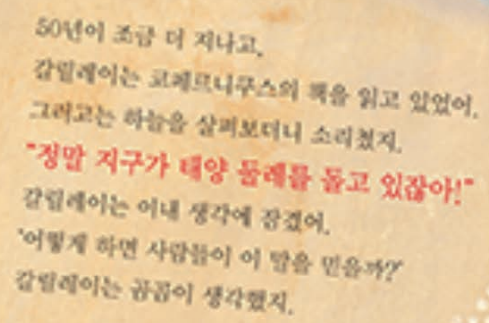 50년이 조금 더 지나고,
갈릴레이는 코페르니쿠스의 책을 읽고 있었어.
그러고는 하늘을 살펴보더니 소리쳤지.
"정말 지구가 태양 둘레를 돌고 있잖아!"
갈릴레이는 이내 생각에 잠겼어.
'어떻게 하면 사람들이 이 말을 믿을까?'
갈릴레이는 곰곰이 생각했지.